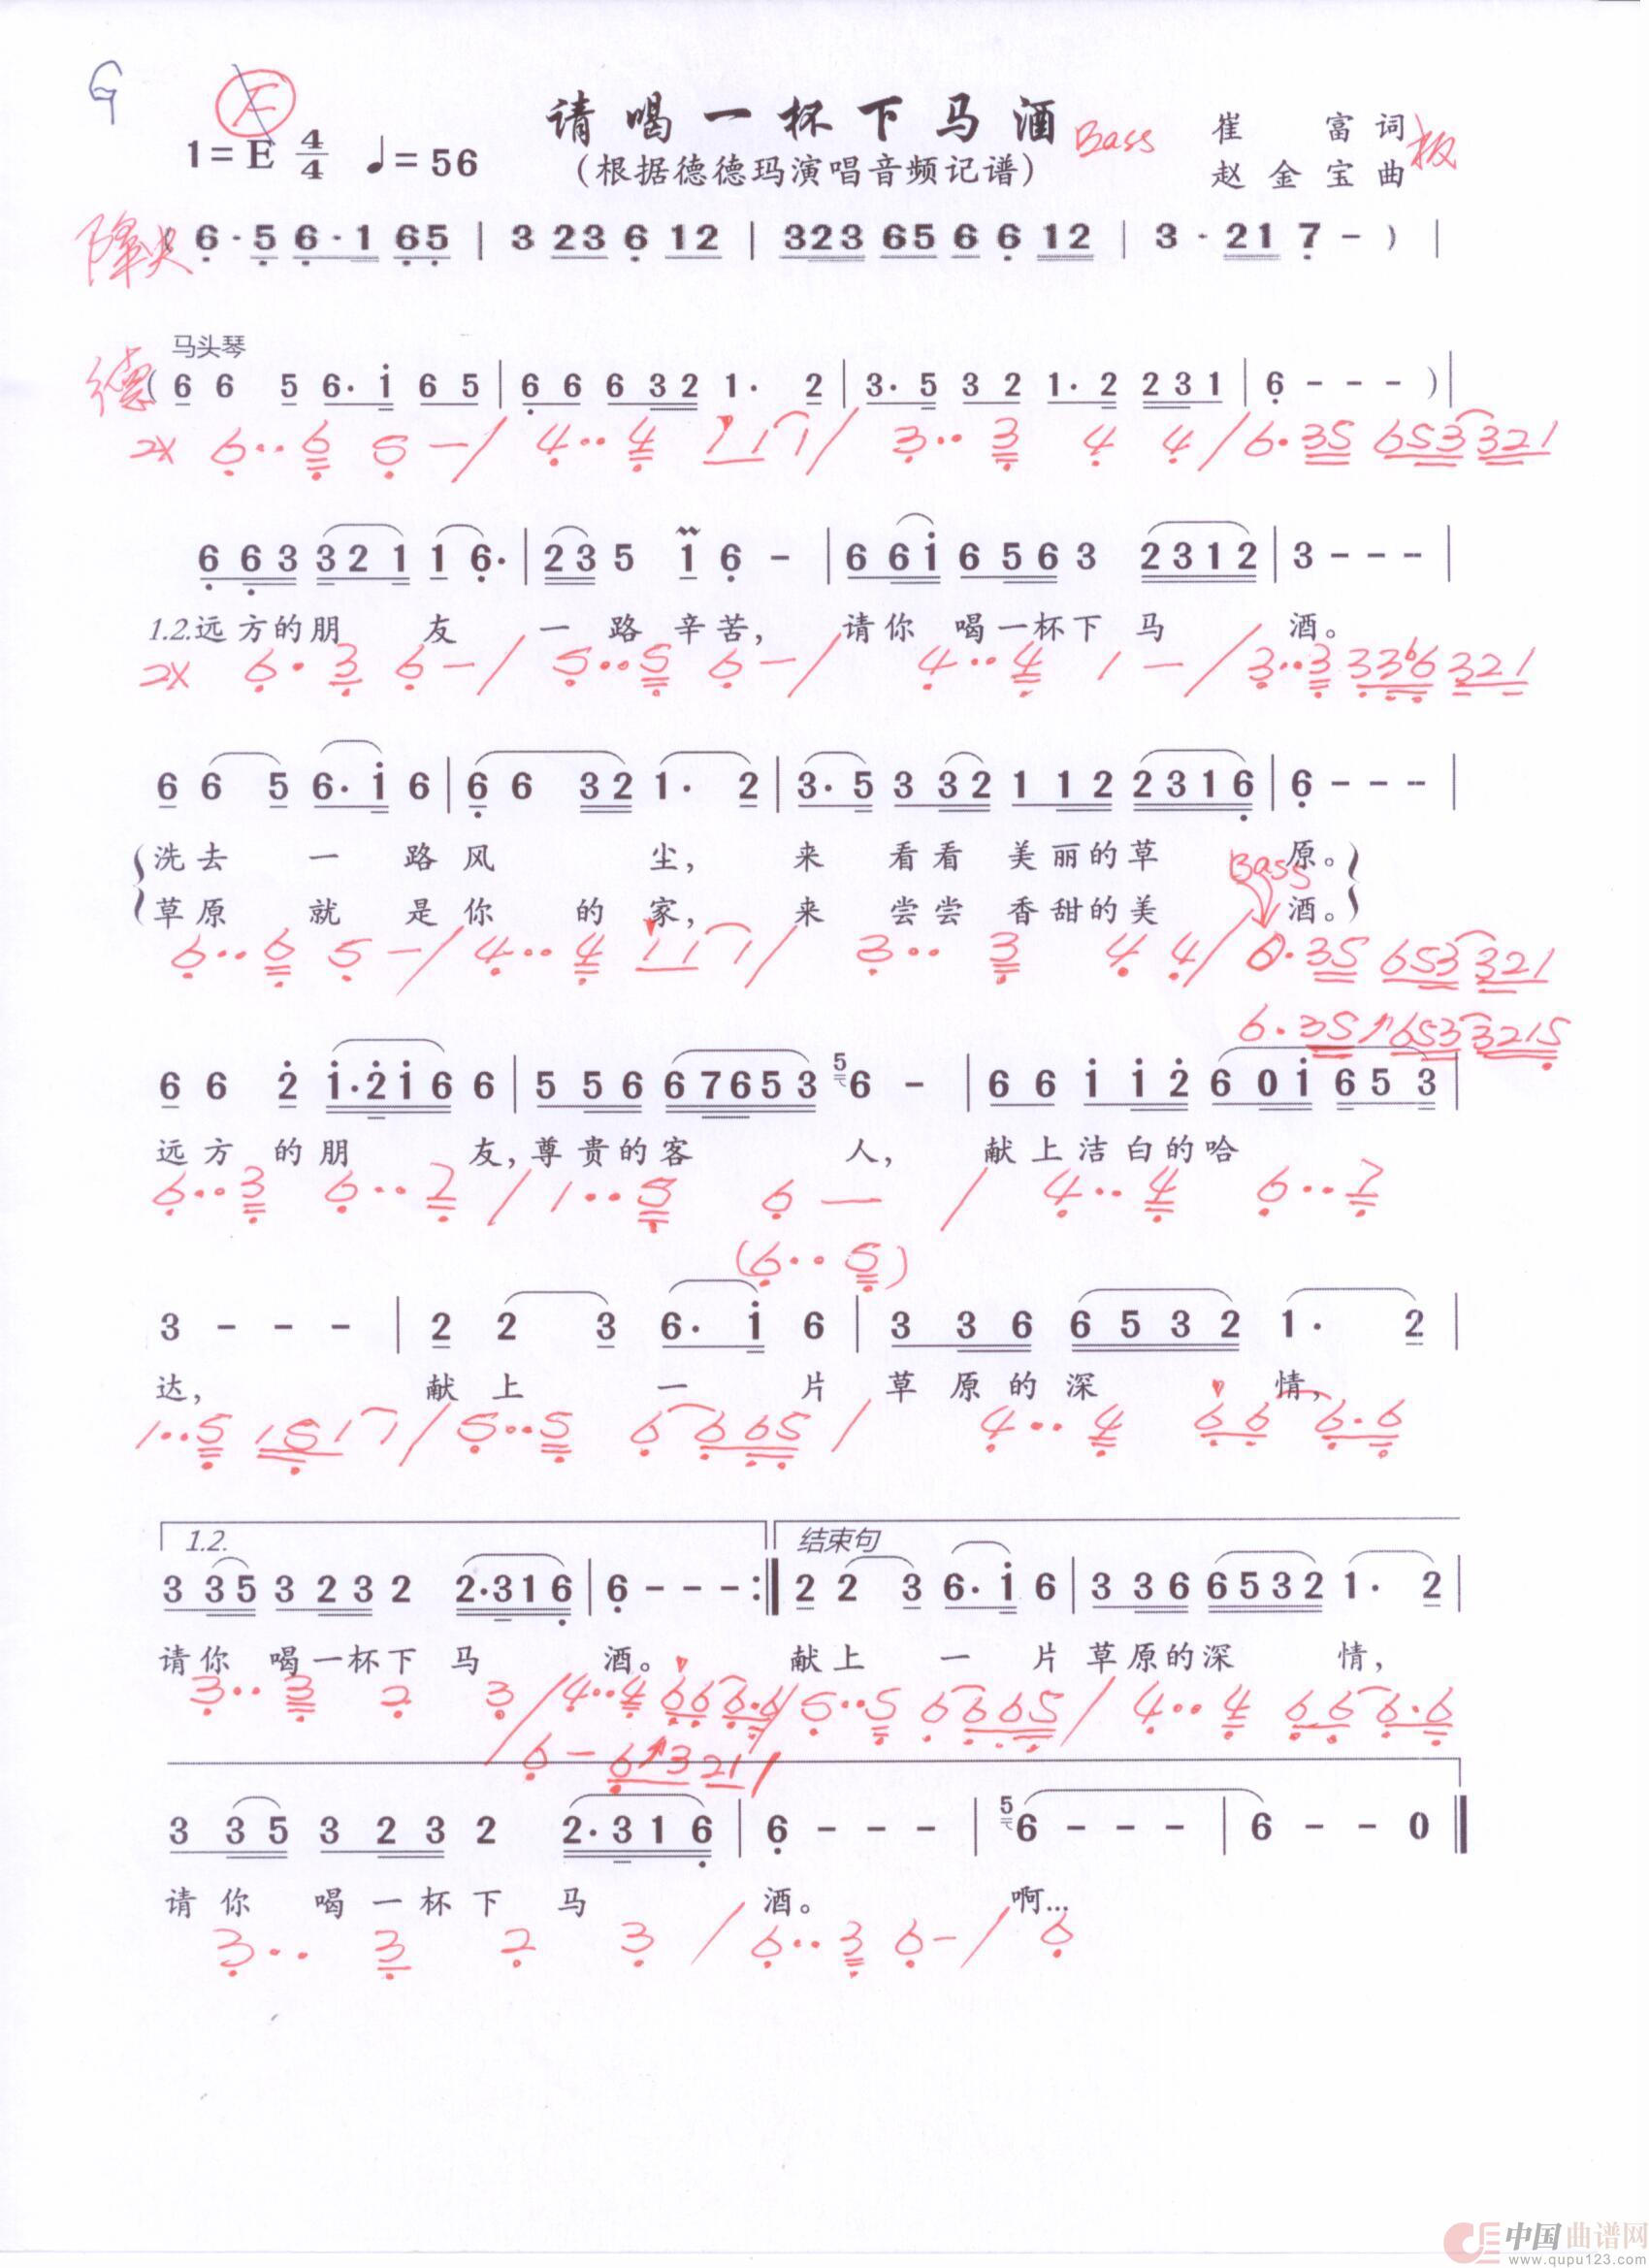 G F
请喝一杯下马酒 Bass 崔 富词 板
1=E 4/4 ♩=56 (根据德德玛演唱音频记谱) 赵金宝曲
降央 6·5 6·1 65 | 3 23 6 12 | 323 65 6 6 12 | 3·21 7 - ) |
马头琴
德 ( 6 6 5 6·i 6 5 | 6 6 6 32 1· 2 | 3·5 3 2 1·2 231 | 6 - - - ) |
2X 6··6 5 — / 4··4 1 1 1 / 3··3 4 4 / 6·35 653321
6 63 321 1 6· | 23 5 1 6 - | 6 6i 6 56 3 2312 | 3 - - - |
1.2.远方的朋 友 一 路 辛苦, 请你 喝一杯下 马 酒。
2X 6·3 6 — / 5··5 6 — / 4··4 1 — / 3··3 3366 321
6 6 5 6·i 6 | 6 6 32 1· 2 | 3·5 3 32 1 12 2316 | 6 - - - |
洗去 一 路风 尘, 来 看看 美丽的草 原。
Bass
草原 就 是你 的 家, 来 尝尝 香甜的美 酒。
6··6 5 — / 4··4 1 1 1 / 3··3 4 4 / 6·35 653321
6·35 6533215
6 6 2 i·2i6 6 | 5 56 67653 5 6 - | 6 6 i i2 6 0i 653 |
远方 的朋 友,尊贵的客 人, 献上洁白的哈
6··3 6··7 / 1··5 6 — / 4··4 6··7
(6··5)
3 - - - | 2 2 3 6· i 6 | 3 36 6532 1· 2 |
达, 献上 一 片 草原的深 情,
1··5 1511 / 5··5 6665 / 4··4 66 6·6
1.2. 结束句
3 35 3 23 2 2·316 | 6 - - - :‖ 2 2 3 6·i 6 | 3 36 6532 1· 2 |
请你 喝一杯下 马 酒。 献上 一 片草原的深 情,
3··3 2 3 / 4··4 66 6·6 / 5··5 6665 / 4··4 66 6·6
6 — 6 3 21 /
3 35 3 23 2 2·316 | 6 - - - | 5 6 - - - | 6 - - 0 ‖
请你 喝一杯下 马 酒。 啊...
3··3 2 3 / 6··3 6 — / 6
中国曲谱网
www.qupu123.com